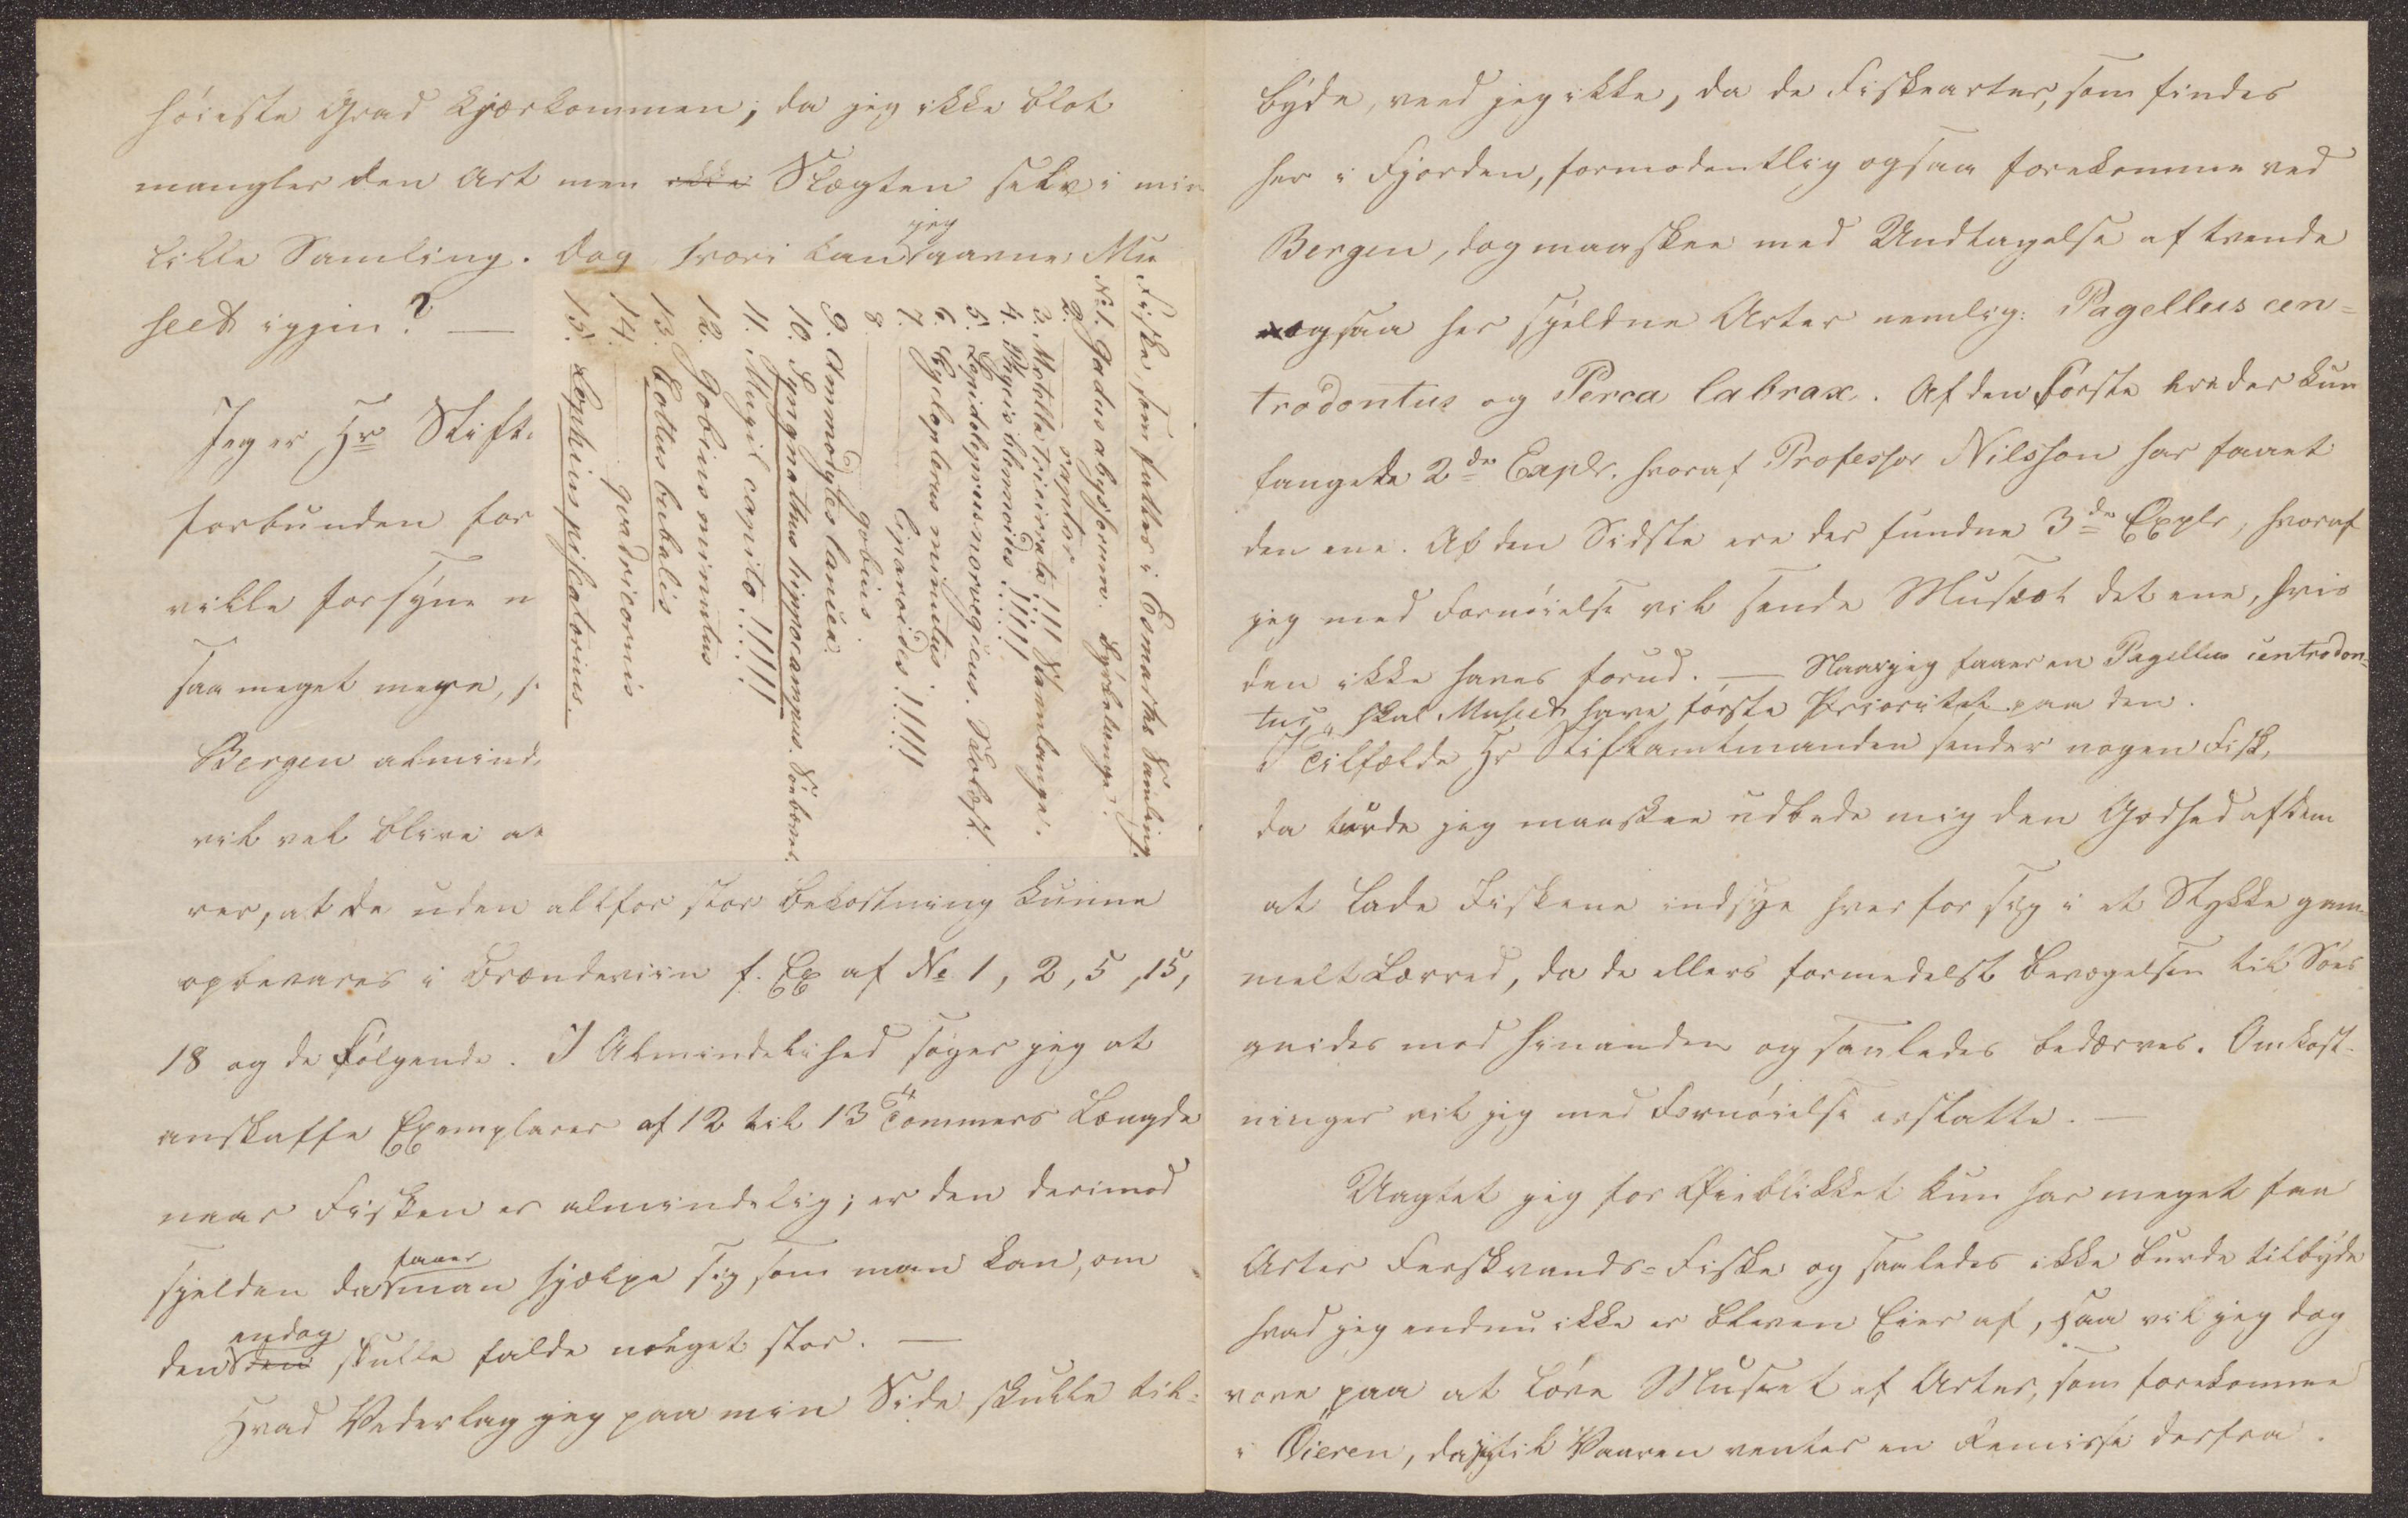 höieste Grad kjærkommen; da jeg ikke blot
mangler den Art men ikke Slægten selv i min
lille Samling. Dog hvori kan jeg gavne Mu
seet igjen? —
Jeg er Hr Stift
forbunden for
ville forsyne
saa meget mere,
Bergen almind
vil vel blive
rer, at de uden altfor stor Bekostning kunne
opbevares i Brændeviin f. Ex af No 1, 2, 5, 15,
18 og de Følgende. I Almindelihed søger jeg at
anskaffe Exemplarer af 12 til 13 Tommers Længde
naar Fisken er almindelig; er den derimod
sjelden da faaer man hjælpe sig som man kan, om
den endog den skulle falde noget stor. —
Hvad Vederlag jeg paa min Side skulle til-
Fiske, som fattes i Esmarks Samling.
No 1. Gadus abyssorum. Byrkelange.
2. — raptor
3. Motella tricirrata !!! Tanglange.
4. Phycis blennoides !!!!!
5. Lepidoleprus norvegicus. Skolæst.
6. Cyclopterus minutus
7. — liparoides !!!!!
8. — gobius
9. Ammodytes lancea.
10. Syngnathus hippocampus.
11. Mugil capito !!!!!
12. Gobius minutus
13. Cottus bubalis
14. — quadricornis
15. Lophius piscatorius.
byde, veed jeg ikke, da de Fiskearter, som findes
her i Fjorden, formodentlig ogsaa forekomme ved
Bergen, dog maaskee med Undtagelse af tvende
ogsaa her sjeldne Arter nemlig: Pagellus cen-
trodontus og Perca labrax. Af den Første er der kun
fangede 2de Explr. hvoraf Professor Nilsson har faaet
den ene. Af den Sidste ere der fundne 3de Explr, hvoraf
jeg med Fornøielse vil sende Museet det ene, hvis
den ikke haves forud. — Naar jeg faaer en Pagellus centrodon-
tus, skal Museet have første Prioritet paa den.
I Tilfælde Hr Stiftamtmanden sender nogen Fisk,
da turde jeg maaskee udbede mig den Godhed af dem
at lade Fiskene indsye hver for sig i et Stykke gam-
melt Lærred, da de ellers formedelst Bevægelsen til Søes
gnides mod hinanden og saaledes bedærves. Omkost-
ninger vil jeg med Fornøielse erstatte. —
Uagtet jeg for Øieblikket kun har meget faa
Arter Ferskvands-Fiske og saaledes ikke burde tilbyde
hvad jeg endnu ikke er bleven Eier af, saa vil jeg dog
vove paa at love Museet af Arter, som forekomme
i Öieren, da jeg til Vaaren venter en Remisse derfra.